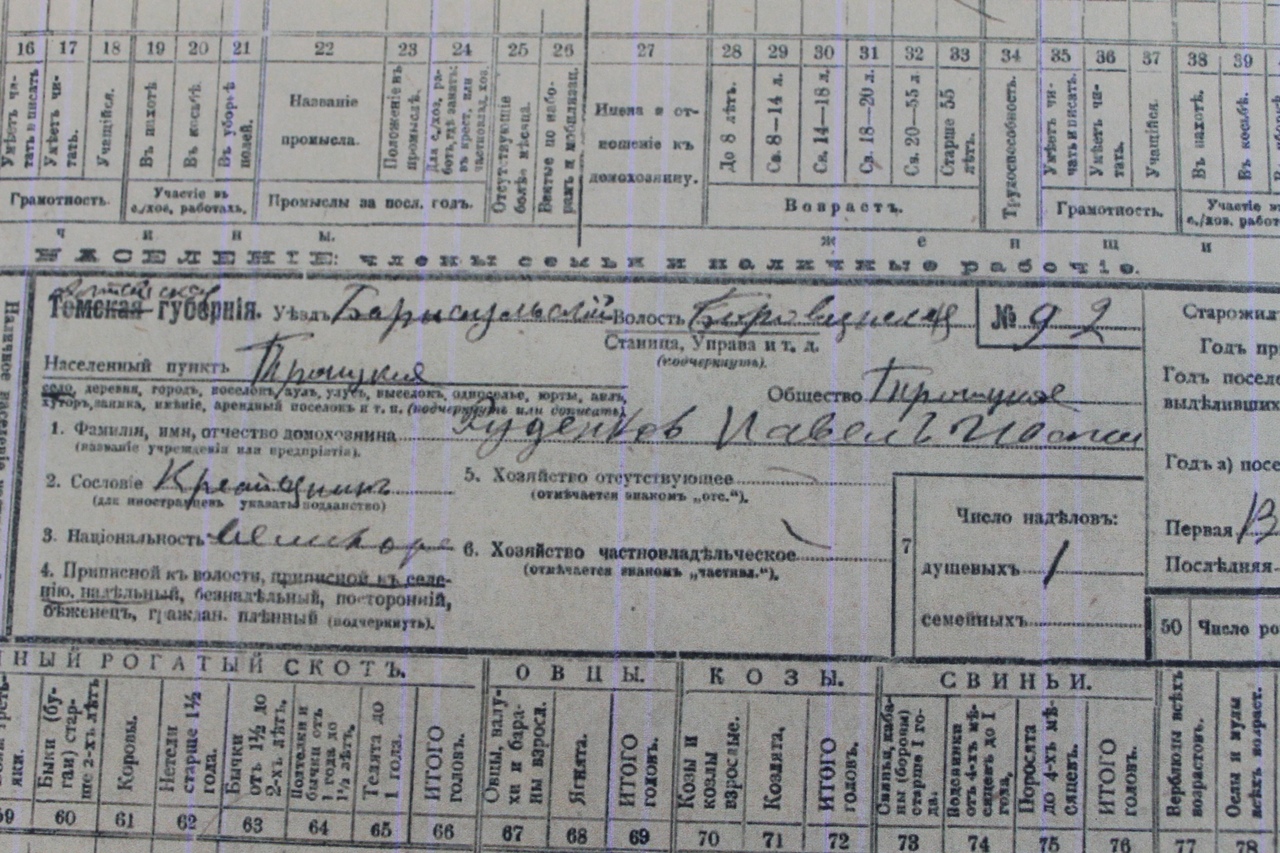 16 17 18 19 20 21 22 23 24 25 26 27 28 29 30 31 32 33 34 35 36 37 38 39
Умѣетъ чи-
тать и писать
Умѣетъ чи-
тать.
Учащійся.
Въ пахотѣ
Въ косьбѣ.
Въ уборкѣ
полей.
Названіе
промысла.
Положеніе въ
промыслѣ.
Отсутствующіе
болѣе мѣсяца.
Взятые по набо-
рамъ и мобилизац.
Имена и от-
ношеніе къ
домохозяину.
До 8 лѣтъ.
Св. 8—14 л.
Св. 14—18 л.
Св. 18—20 л.
Св. 20—55 л.
Старше 55
лѣтъ.
Трудоспособность.
Умѣетъ чи-
тать и писать.
Умѣетъ чи-
тать.
Учащійся.
Въ пахотѣ.
Въ косьбѣ.
Грамотность.
Участіе въ
с./хоз. работахъ.
Промыслы за посл. годъ.
Возрастъ.
Грамотность.
Участіе въ
с./хоз. работ
ч и н ы.
ж е н щ и
НАСЕЛЕНІЕ: члены семьи и наличные рабочіе.
Томская губернія. Уѣздъ Барнаульскій Волость Боровлянская № 92
Станица, Управа и т. д.
(подчеркнуть).
Населенный пунктъ Троицкое
село, деревня, городъ, поселокъ, аулъ, улусъ, выселокъ, односелье, юрты, аилъ,
хуторъ, заимка, имѣніе, арендный поселокъ и т. п. (подчеркнуть или дописать).
Общество Троицкое
1. Фамилія, имя, отчество домохозяина Руденковъ Павелъ
(названіе учрежденія или предпріятія).
2. Сословіе Крестьянинъ
(для иностранцевъ указать подданство)
3. Національность
4. Приписной къ волости, приписной къ селе-
нію, надѣльный, безнадѣльный, посторонній,
бѣженецъ, граждан. плѣнный (подчеркнуть).
5. Хозяйство отсутствующее
(отмѣчается знакомъ „отс.“).
6. Хозяйство частновладѣльческое
(отмѣчается знакомъ „частвл.“).
7
Число надѣловъ:
душевыхъ 1
семейныхъ
Старожил
Годъ пр
Годъ посел
выдѣлившихс
Годъ а) посе
Первая В
Последняя
50 Число ро
НЫЙ РОГАТЫЙ СКОТЪ. ОВЦЫ. КОЗЫ. СВИНЬИ.
Быки (бу-
гаи) стар-
ше 2-хъ лѣтъ
Коровы.
Нетели
старше 1½
года.
Бычки
отъ 1½ до
2-хъ лѣтъ.
Полутелки и
бычки отъ
1 года до
1½ лѣтъ.
Телята до
1 года.
ИТОГО
головъ.
Овцы, валу-
хи и бара-
ны взросл.
Ягнята.
ИТОГО
головъ.
Козы и
козлы
взрослые.
Козлята.
ИТОГО
головъ.
Свиньи, каба-
ны (борова)
старше 1 го-
да.
Подсвинки
отъ 4-хъ мѣ-
сяцевъ до 1
года.
Поросята
до 4-хъ мѣ-
сяцевъ.
ИТОГО
головъ.
Верблюды всѣхъ
возрастовъ.
Ослы и мулы
всѣхъ возраст.
59 60 61 62 63 64 65 66 67 68 69 70 71 72 73 74 75 76 77 78